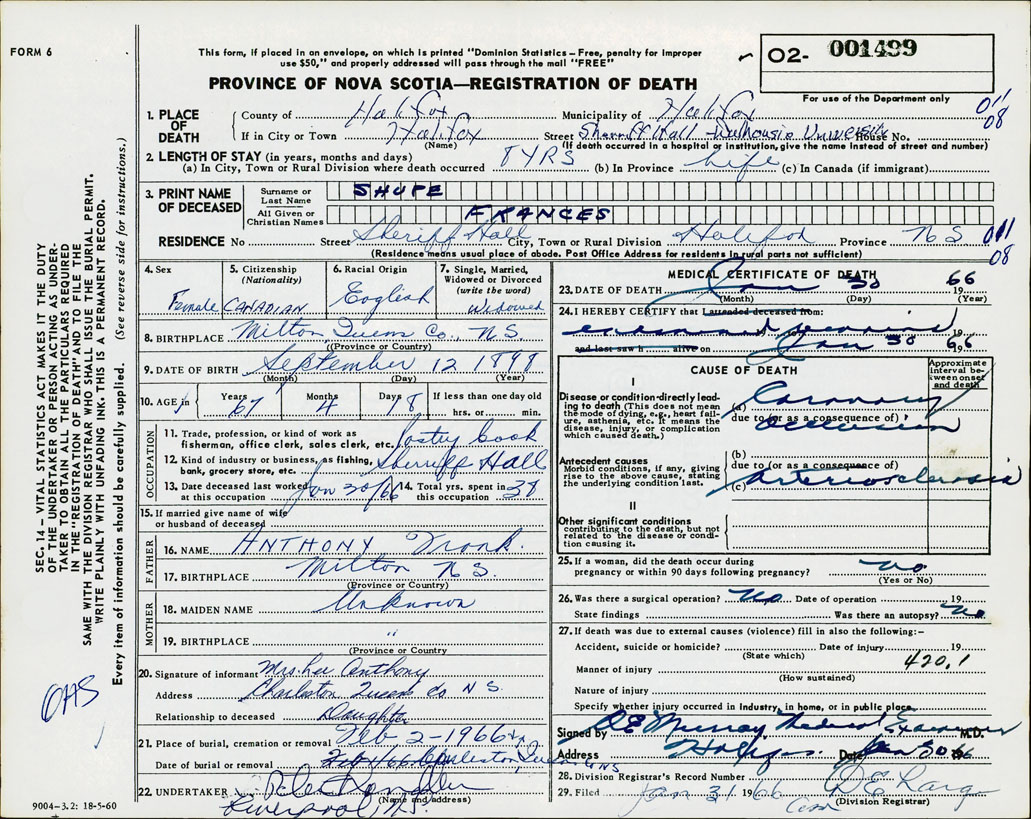 FORM 6
This form, if placed in an envelope, on which is printed "Dominion Statistics – Free, penalty for improper
use $50," and properly addressed will pass through the mail "FREE"
02- 001499
For use of the Department only
PROVINCE OF NOVA SCOTIA—REGISTRATION OF DEATH
SEC. 14 – VITAL STATISTICS ACT MAKES IT THE DUTY
OF THE UNDERTAKER OR PERSON ACTING AS UNDER-
TAKER TO OBTAIN ALL THE PARTICULARS REQUIRED
IN THE "REGISTRATION OF DEATH" AND TO FILE THE
SAME WITH THE DIVISION REGISTRAR WHO SHALL ISSUE THE BURIAL PERMIT.
WRITE PLAINLY WITH UNFADING INK. THIS IS A PERMANENT RECORD.
Every item of information should be carefully supplied. (See reverse side for instructions.)
1. PLACE OF DEATH
County of Halifax Municipality of Halifax 011
If in City or Town Halifax Street Hall Dalhousie University House No. 08
(Name) (If death occurred in a hospital or institution, give the name instead of street and number)
2. LENGTH OF STAY (in years, months and days)
(a) In City, Town or Rural Division where death occurred 8 YRS (b) In Province Life (c) In Canada (if immigrant)
3. PRINT NAME OF DECEASED
Surname or Last Name SHUPE
All Given or Christian Names FRANCES
RESIDENCE No Street Sheriff Hall City, Town or Rural Division Halifax Province N S 011
(Residence means usual place of abode. Post Office Address for residents in rural parts not sufficient) 08
4. Sex Female
5. Citizenship (Nationality) CANADIAN
6. Racial Origin English
7. Single, Married, Widowed or Divorced (write the word) Widowed
8. BIRTHPLACE Milton Queens Co., N.S.
(Province or Country)
9. DATE OF BIRTH September 12 1898
(Month) (Day) (Year)
10. AGE Years 67 Months 4 Days 18 If less than one day old
hrs. or min.
OCCUPATION
11. Trade, profession, or kind of work as
fisherman, office clerk, sales clerk, etc. Pastry Cook
12. Kind of industry or business, as fishing,
bank, grocery store, etc. Sherriff Hall
13. Date deceased last worked at this occupation Jan 30/66 14. Total yrs. spent in this occupation 38
15. If married give name of wife
or husband of deceased
FATHER
16. NAME ANTHONY Frank.
17. BIRTHPLACE Milton N S.
(Province or Country)
MOTHER
18. MAIDEN NAME Unknown
19. BIRTHPLACE "
(Province or Country)
20. Signature of informant Mrs. Anthony
Address Charleston Queens Co N S.
Relationship to deceased Daughter
21. Place of burial, cremation or removal Feb 2-1966
Date of burial or removal Feb Charleston, Queens Co NS
22. UNDERTAKER
(Name and address)
Liverpool, N.S.
9004-3.2: 18-5-60
OHS
MEDICAL CERTIFICATE OF DEATH
23. DATE OF DEATH Jan 30 1966
(Month) (Day) (Year)
24. I HEREBY CERTIFY that I attended deceased from:
examined deceased 19
and last saw h alive on Jan 30 1966
CAUSE OF DEATH
Approximate interval between onset and death
I
Disease or condition directly lead-
ing to death (This does not mean
the mode of dying, e.g., heart fail-
ure, asthenia, etc. It means the
disease, injury, or complication
which caused death.)
(a) Coronary
due to (or as a consequence of)
occlusion
Antecedent causes
Morbid conditions, if any, giving
rise to the above cause, stating
the underlying condition last.
(b)
due to (or as a consequence of)
(c) arteriosclerosis
II
Other significant conditions
contributing to the death, but not
related to the disease or condi-
tion causing it.
25. If a woman, did the death occur during
pregnancy or within 90 days following pregnancy? No
(Yes or No)
26. Was there a surgical operation? No Date of operation 19
State findings Was there an autopsy? No
27. If death was due to external causes (violence) fill in also the following:–
Accident, suicide or homicide? Date of injury 19
(State which)
Manner of injury 420.1
(How sustained)
Nature of injury
Specify whether injury occurred in Industry, in home, or in public place
Signed by D E Murray Medical Examiner M.D.
Address Halifax Date Jan 30 66
28. Division Registrar's Record Number
29. Filed Jan 31 1966
(Division Registrar)